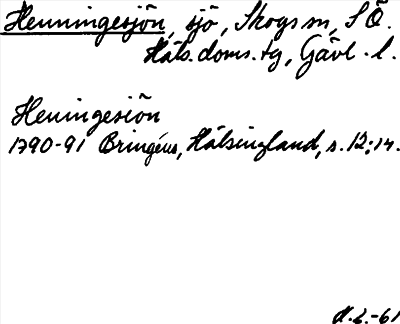 Henningesjön, sjö, Skogs sn, SÖ.
Häls. doms. tg, Gävl. l.
Heningesiön
1790-91 Bringéus, Hälsingland, s. 12; 14.
H.L.-61